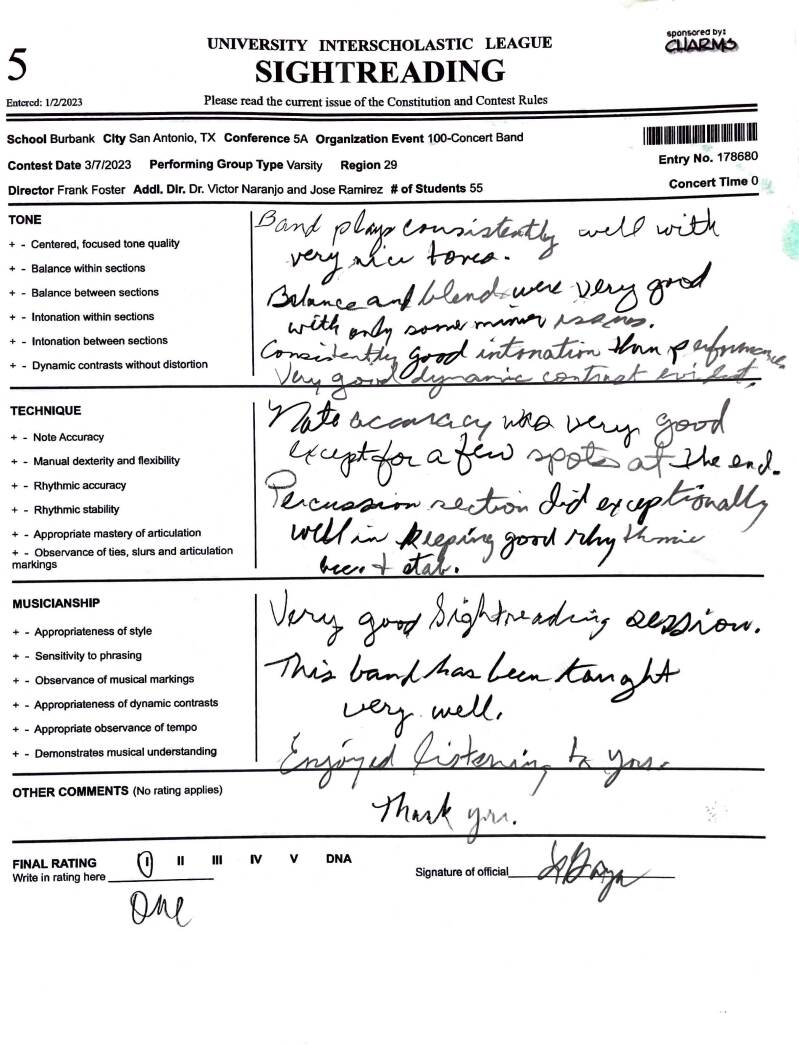 5
UNIVERSITY INTERSCHOLASTIC LEAGUE
sponsored by:
CHARMS
SIGHTREADING
Entered: 1/2/2023
Please read the current issue of the Constitution and Contest Rules
School Burbank City San Antonio, TX Conference 5A Organization Event 100-Concert Band
Contest Date 3/7/2023 Performing Group Type Varsity Region 29
Entry No. 178680
Director Frank Foster Addl. Dir. Dr. Victor Naranjo and Jose Ramirez # of Students 55
Concert Time 0
TONE
+ - Centered, focused tone quality
+ - Balance within sections
+ - Balance between sections
+ - Intonation within sections
+ - Intonation between sections
+ - Dynamic contrasts without distortion
Band plays consistently well with
very nice tones.
Balance and blend were very good
with only some minor issues.
Consistently good intonation thru performance.
Very good dynamic contrast evident.
TECHNIQUE
+ - Note Accuracy
+ - Manual dexterity and flexibility
+ - Rhythmic accuracy
+ - Rhythmic stability
+ - Appropriate mastery of articulation
+ - Observance of ties, slurs and articulation
markings
Note accuracy was very good
except for a few spots at the end.
Percussion section did exceptionally
well in keeping good rhythmic
acc. + stab.
MUSICIANSHIP
+ - Appropriateness of style
+ - Sensitivity to phrasing
+ - Observance of musical markings
+ - Appropriateness of dynamic contrasts
+ - Appropriate observance of tempo
+ - Demonstrates musical understanding
Very good Sightreading session.
This band has been taught
very well.
Enjoyed listening to you.
OTHER COMMENTS (No rating applies)
Thank you.
FINAL RATING I II III IV V DNA
Write in rating here
One
Signature of official